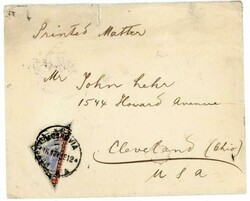 Printed Matter
Mr John Lehr
1544 Howard Avenue
Cleveland (Ohio)
U S A